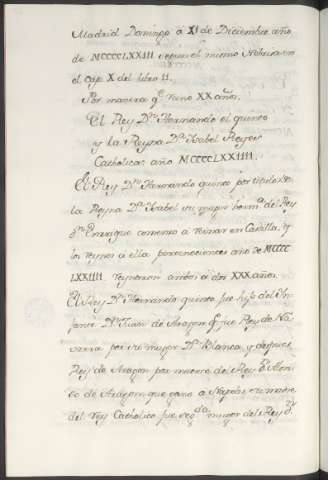 Madrid Domingo a XI de Diciembre año
de MCCCCLXXIIII segun el mismo Nebrixa en
el cap. X del libro II.
Por manera q.e reinó XX años.
El Rey D.n Hernando el quinto
y la Reyna D.a Isabel Reyes
Catholicos año MCCCCLXXIIII.
El Rey D.n Hernando quinto por titulo de
la Reyna D.a Isabel su muger herm.a del Rey
D.n Enrrique comenzo a reinar en Castilla, y
los reynos a ella pertenecientes año de MCCCC
LXXIIII. reynaron ambos a dos XXX años.
El Rey D.n Hernando quinto fue hijo del In-
fante D.n Juan de Aragon q.e fue Rey de Na-
varra por su muger D.a Blanca, y despues
Rey de Aragon por muerte del Rey D. Alon-
so de Aragon que gano a Napoles su madre
del Rey Catholico fue seg.da muger del Rey D.n